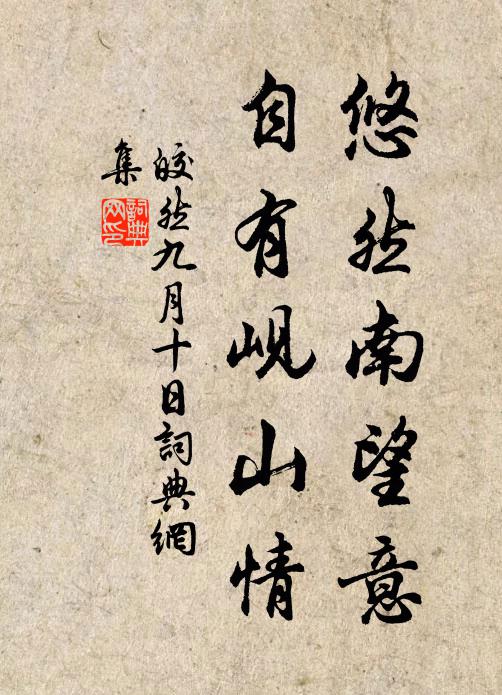 悠然南望意
自有峴山情
皎然九月十日詞典網
集
詞典
网印